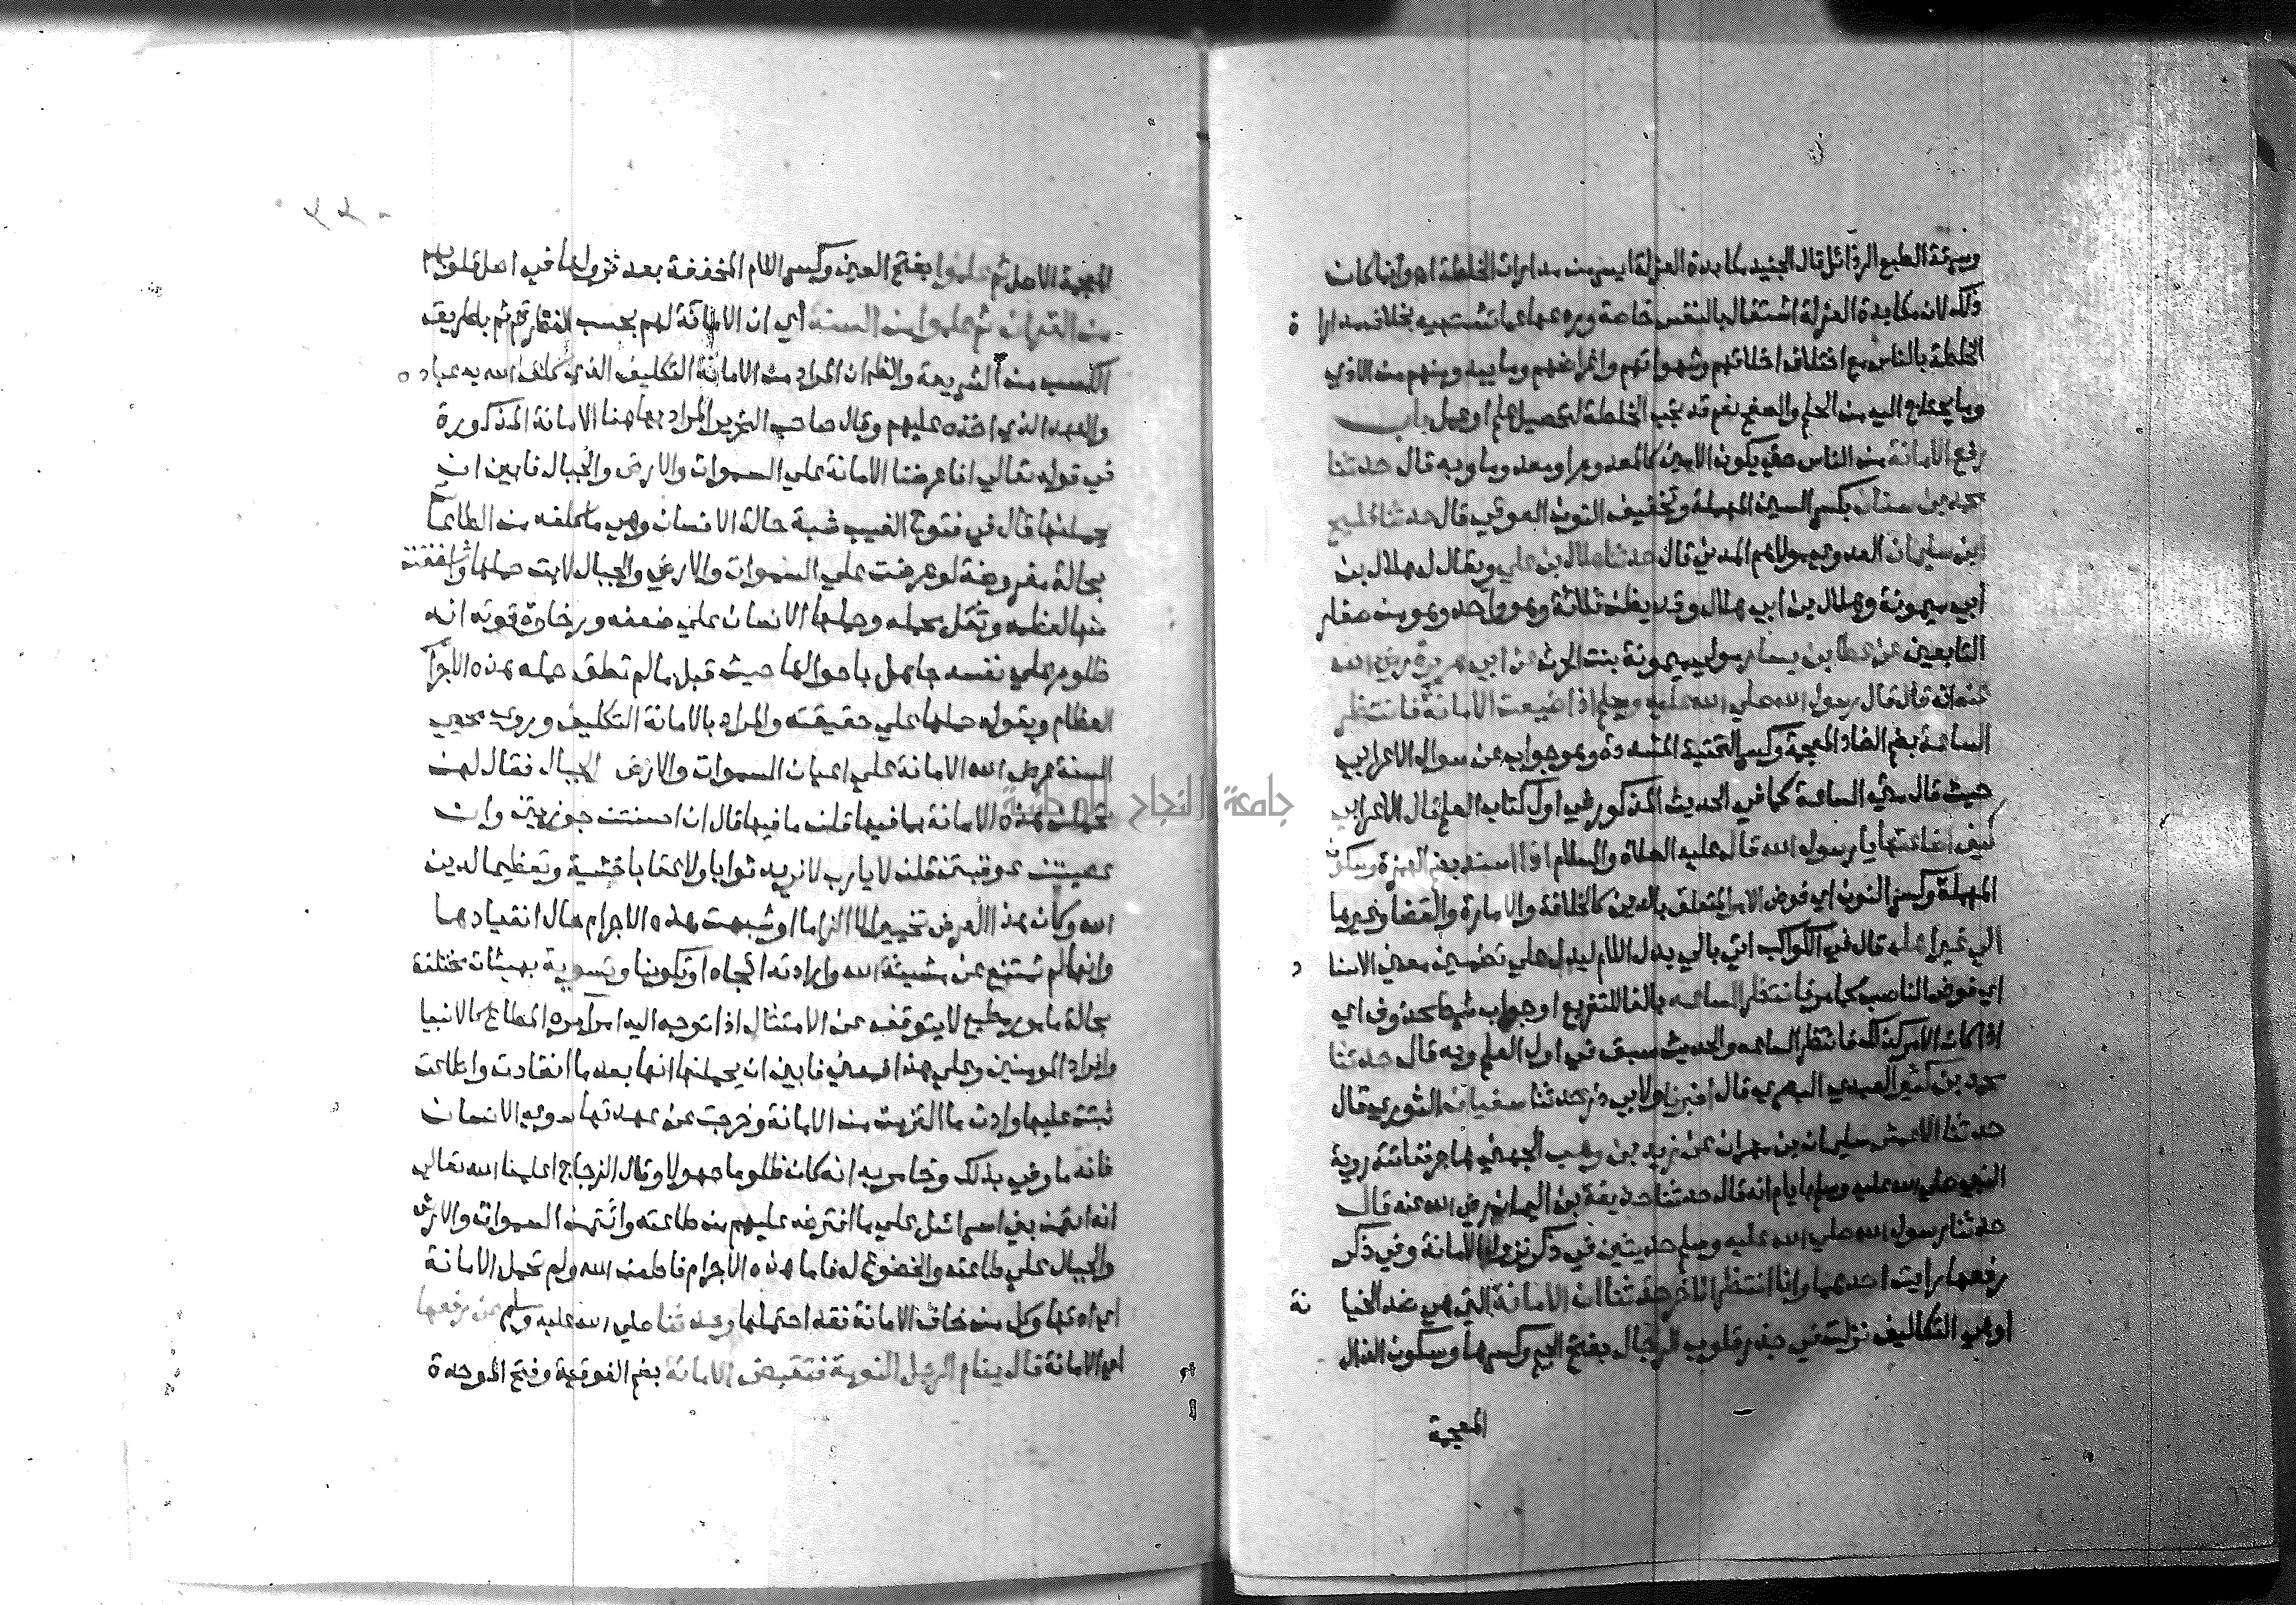 وسرقة الطبع الرذائل قال الجنيد مكابدة العزلة ايسر من مداراة الخلطة اهـ وانما كان
ذلك لان مكابدة العزلة اشتغال بالنفس خاصة وردعها عما تشتهيه بخلاف مدارا ة
الخلطة بالناس مع اختلاف اخلاقهم وشهواتهم واغراضهم وما يبدو منهم من الاذي
وما يحتاج اليه من الحلم والصفح نعم قد تجب الخلطة لتحصيل علم او عمل باب
رفع الامانة من الناس حتي يكون الامين كالمعدوم او معدوما وبه قال حدثنا
محمد بن سنان بكسر السين المهملة وتخفيف النون العوقي قال حدثنا فليح
ابن سليمان العدوي مولاهم المدني قال حدثنا هلال بن علي ويقال له هلال بن
أبي ميمونة وهلال بن ابي هلال وقد يظن ثلاثة وهو واحد وهو من صغار
التابعين عن عطا بن يسار مولي ميمونة بنت الحرث عن ابي هريرة رضي الله
عنه انه قال قال رسول الله صلي الله عليه وسلم اذا ضيعت الامانة فانتظر
الساعة بضم الضاد المعجمة وكسر التحتية المشددة وهو جواب عن سوال الاعرابي
حيث قال متي الساعة كما في الحديث المذكور في اول كتاب العلم قال الاعرابي
كيف اضاعتها يا رسول الله قال عليه الصلاة والسلام اذا اسند بضم الهمزة وسكون
المهملة وكسر النون اي فوض الامر المتعلق بالدين كالخلافة والامارة والقضا وغيرها
الي غير اهله قال في الكواكب اتي بالي بدل اللام ليدل علي تضمين معني الاسنا د
اي فوض المناصب كما مر فانتظر الساعه بالفا للتفريع او جواب شرط محذوف اي
اذا كان الامر كذلك فانتظر الساعه والحديث سبق في اول العلم وبه قال حدثنا
محمد بن كثير العبدي البصري قال اخبرنا ولابي ذر حدثنا سفيان الثوري قال
حدثنا الاعمش سليمان بن مهران عن زيد بن وهب الجهني هاجر ففاتته روية
النبي صلي الله عليه وسلم بايام انه قال حدثنا حذيفة بن اليمان رضي الله عنه قال
حدثنا رسول الله صلي الله عليه وسلم حديثين في ذكر نزول الامانة وفي ذكر
رفعها رايت احدهما وانا انتظر الاخر حدثنا ان الامانة التي هي ضد الخيا نة
او هي التكاليف نزلت في جذر قلوب الرجال بفتح الجيم وكسرها وسكون الذال
المعجمة
المعجمة الاصل ثم علموا بفتح العين وكسر اللام المخففة بعد نزولها في اصل قلوبهم
من القران ثم علموا من السنة أي ان الامانة لهم بحسب الفطرة ثم بطريق
الكسب من الشريعة والظاهر ان المراد من الامانة التكليف الذي كلف الله به عباد ه
والعهد الذي اخذه عليهم وقال صاحب التحرير المراد بها هنا الامانة المذكورة
في قوله تعالي انا عرضنا الامانة علي السموات والارض والجبال فابين ان
يحملنها قال في فتوح الغيب شبه حالة الانسان وهي ما كلفه من الطاعة
بحالة مفروضة لو عرضت علي السموات والارض والجبال لابت حملها واشفقت
منها لعظمه وثقل محمله وحملها الانسان علي ضعفه ورخاوة قوته انه
ظلوم علي نفسه جاهل باحوالها حيث قبل ما لم تطق حمله هذه الاجرام
العظام وبقوله حملها علي حقيقته والمراد بالامانة التكليف وروي محيي
السنة عرض الله الامانة علي اعيان السموات والارض والجبال فقال لهن
تحملن هذه الامانة بما فيها قلن ما فيها قال ان احسنتن جوزيتن وان
عصيتن عوقبتن قلن لا يارب لا نريد ثوابا ولا عقابا خشية وتعظيما لدين
الله وكان هذا العرض تخييرا لا الزاما او شبهت هذه الاجرام حال انقيادها
وانها لم تمتنع عن مشيئة الله وارادته ايجادا وتكوينا وتسوية بهيئات مختلفة
بحالة مامور مطيع لا يتوقف عن الامتثال اذا توجه اليه امر امره المطاع كالانبيا
وافراد المومنين وعلي هذا فمعني فابين ان يحملنها انها بعد ما انقادت واطاعت
ثبتت عليها وادت ما التزمت من الامانة وخرجت عن عهدتها سوي الانسان
فانه ما وفي بذلك وخاس به انه كان ظلوما جهولا وقال الزجاج اعلمنا الله تعالي
انه ائتمن بني اسرائيل علي ما افترضه عليهم من طاعته وائتمن السموات والارض
والجبال علي طاعته والخضوع له فاما هذه الاجرام فاطعن الله ولم تحمل الامانة
اي ادتها وكل من خان الامانة فقد احتملها وحدثنا صلي الله عليه وسلم عن رفعها
اي الامانة قال ينام الرجل النومة فتقبض الامانة بضم الفوقية وفتح الموحدة
جامعة النجاح الوطنية